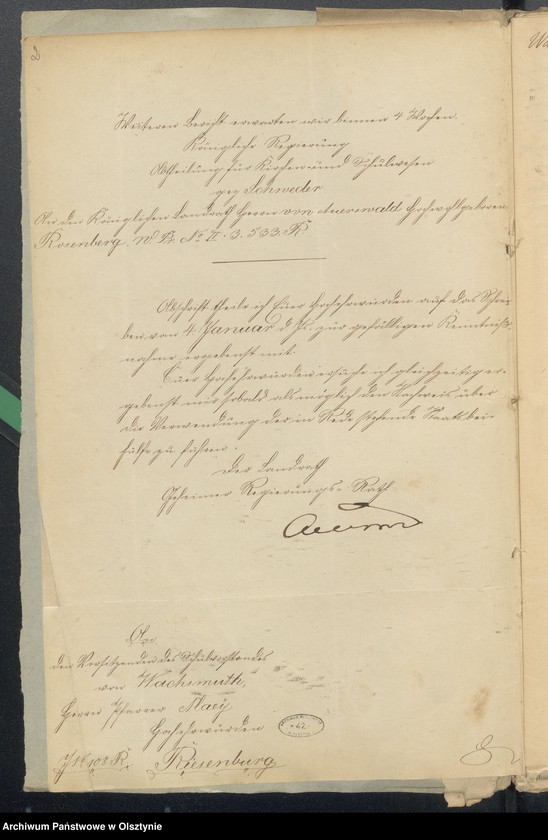 2
Weiteren Bericht erwarten wir binnen 4 Wochen.
Königliche Regierung
Abtheilung für Kirchen- und Schulwesen
gez Schweder
An den Königlichen Landrath Herrn von Auerswald Hochwohlgeboren
Rosenberg. W. Pr. No II. 3. 533. R.
Abschrift theile ich Euer Hochehrwürden auf das Schrei-
ben von 4 Januar d Js. zur gefälligen Kenntniß-
nahme ergebenst mit.
Euer Hochehrwürden ersuche ich gleichzeitig er-
gebenst mir sobald als möglich den Nachweis über
die Verwendung der in Rede stehende Staatsbei-
hülfe zu führen.
Der Landrath
Geheimer Regierungs-Rath
An
den Vorsitzenden des Schulvorstandes
von Wachsmuth,
Herrn Pfarrer
Hochehrwürden
Riesenburg
42
Archiwum Państwowe w Olsztynie